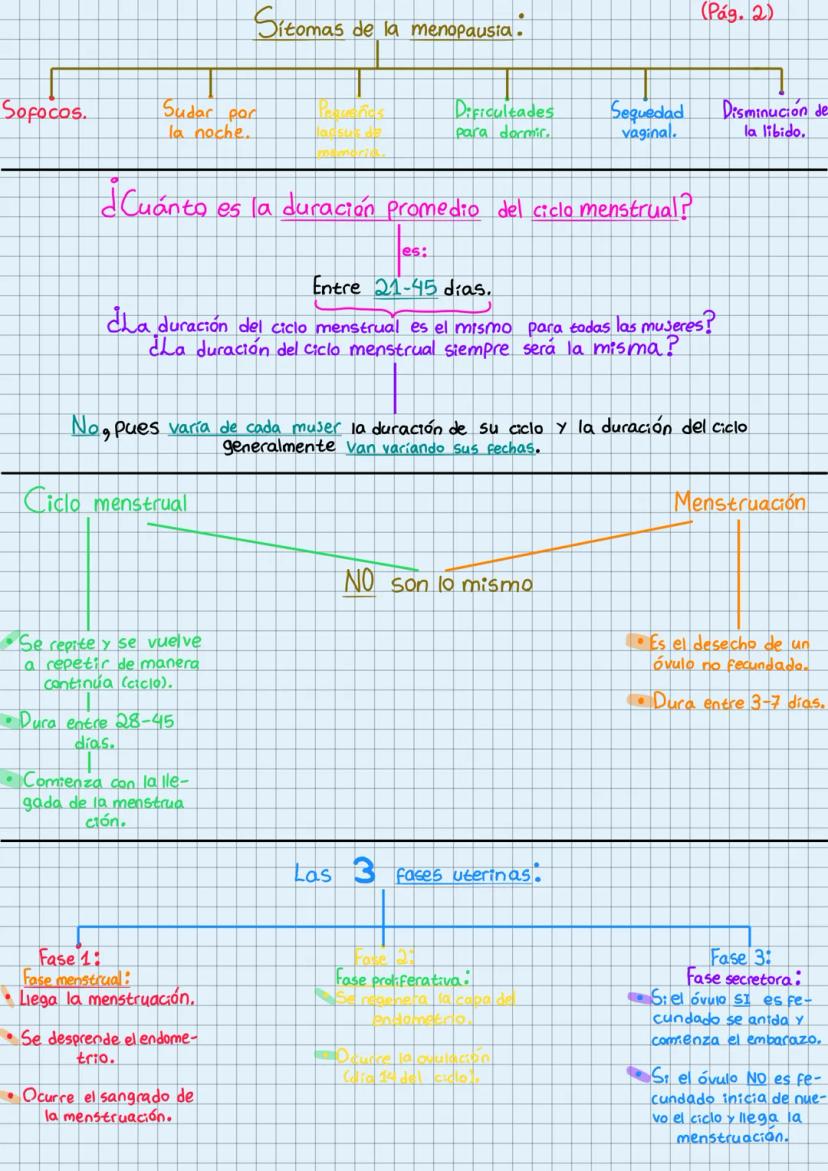 (Pág. 2)
Sítomas de la menopausia:
Sofocos.
Sudar por
la noche.
Pequeños
lapsus de
memoria.
Dificultades
para dormir.
Sequedad
vaginal.
Disminución de
la libido.
¿Cuánto es la duración promedio del ciclo menstrual?
es:
Entre 21-45 días.
¿La duración del ciclo menstrual es el mismo para todas las mujeres?
¿La duración del ciclo menstrual siempre será la misma?
No, pues varía de cada mujer la duración de su ciclo y la duración del ciclo
generalmente van variando sus fechas.
Ciclo menstrual
Menstruación
NO son lo mismo
• Se repite y se vuelve
a repetir de manera
continúa (ciclo).
• Dura entre 28-45
días.
• Comienza con la lle-
gada de la menstrua
ción.
• Es el desecho de un
óvulo no fecundado.
• Dura entre 3-7 días.
Las 3 fases uterinas:
Fase 1:
Fase menstrual:
• Llega la menstruación.
• Se desprende el endome-
trio.
• Ocurre el sangrado de
la menstruación.
Fase 2:
Fase proliferativa:
Se regenera la capa del
endometrio.
Ocurre la ovulación
(día 14 del ciclo).
Fase 3:
Fase secretora:
• Si el óvulo SI es fe-
cundado se anida y
comienza el embarazo.
• Si el óvulo NO es fe-
cundado inicia de nue-
vo el ciclo y llega la
menstruación.